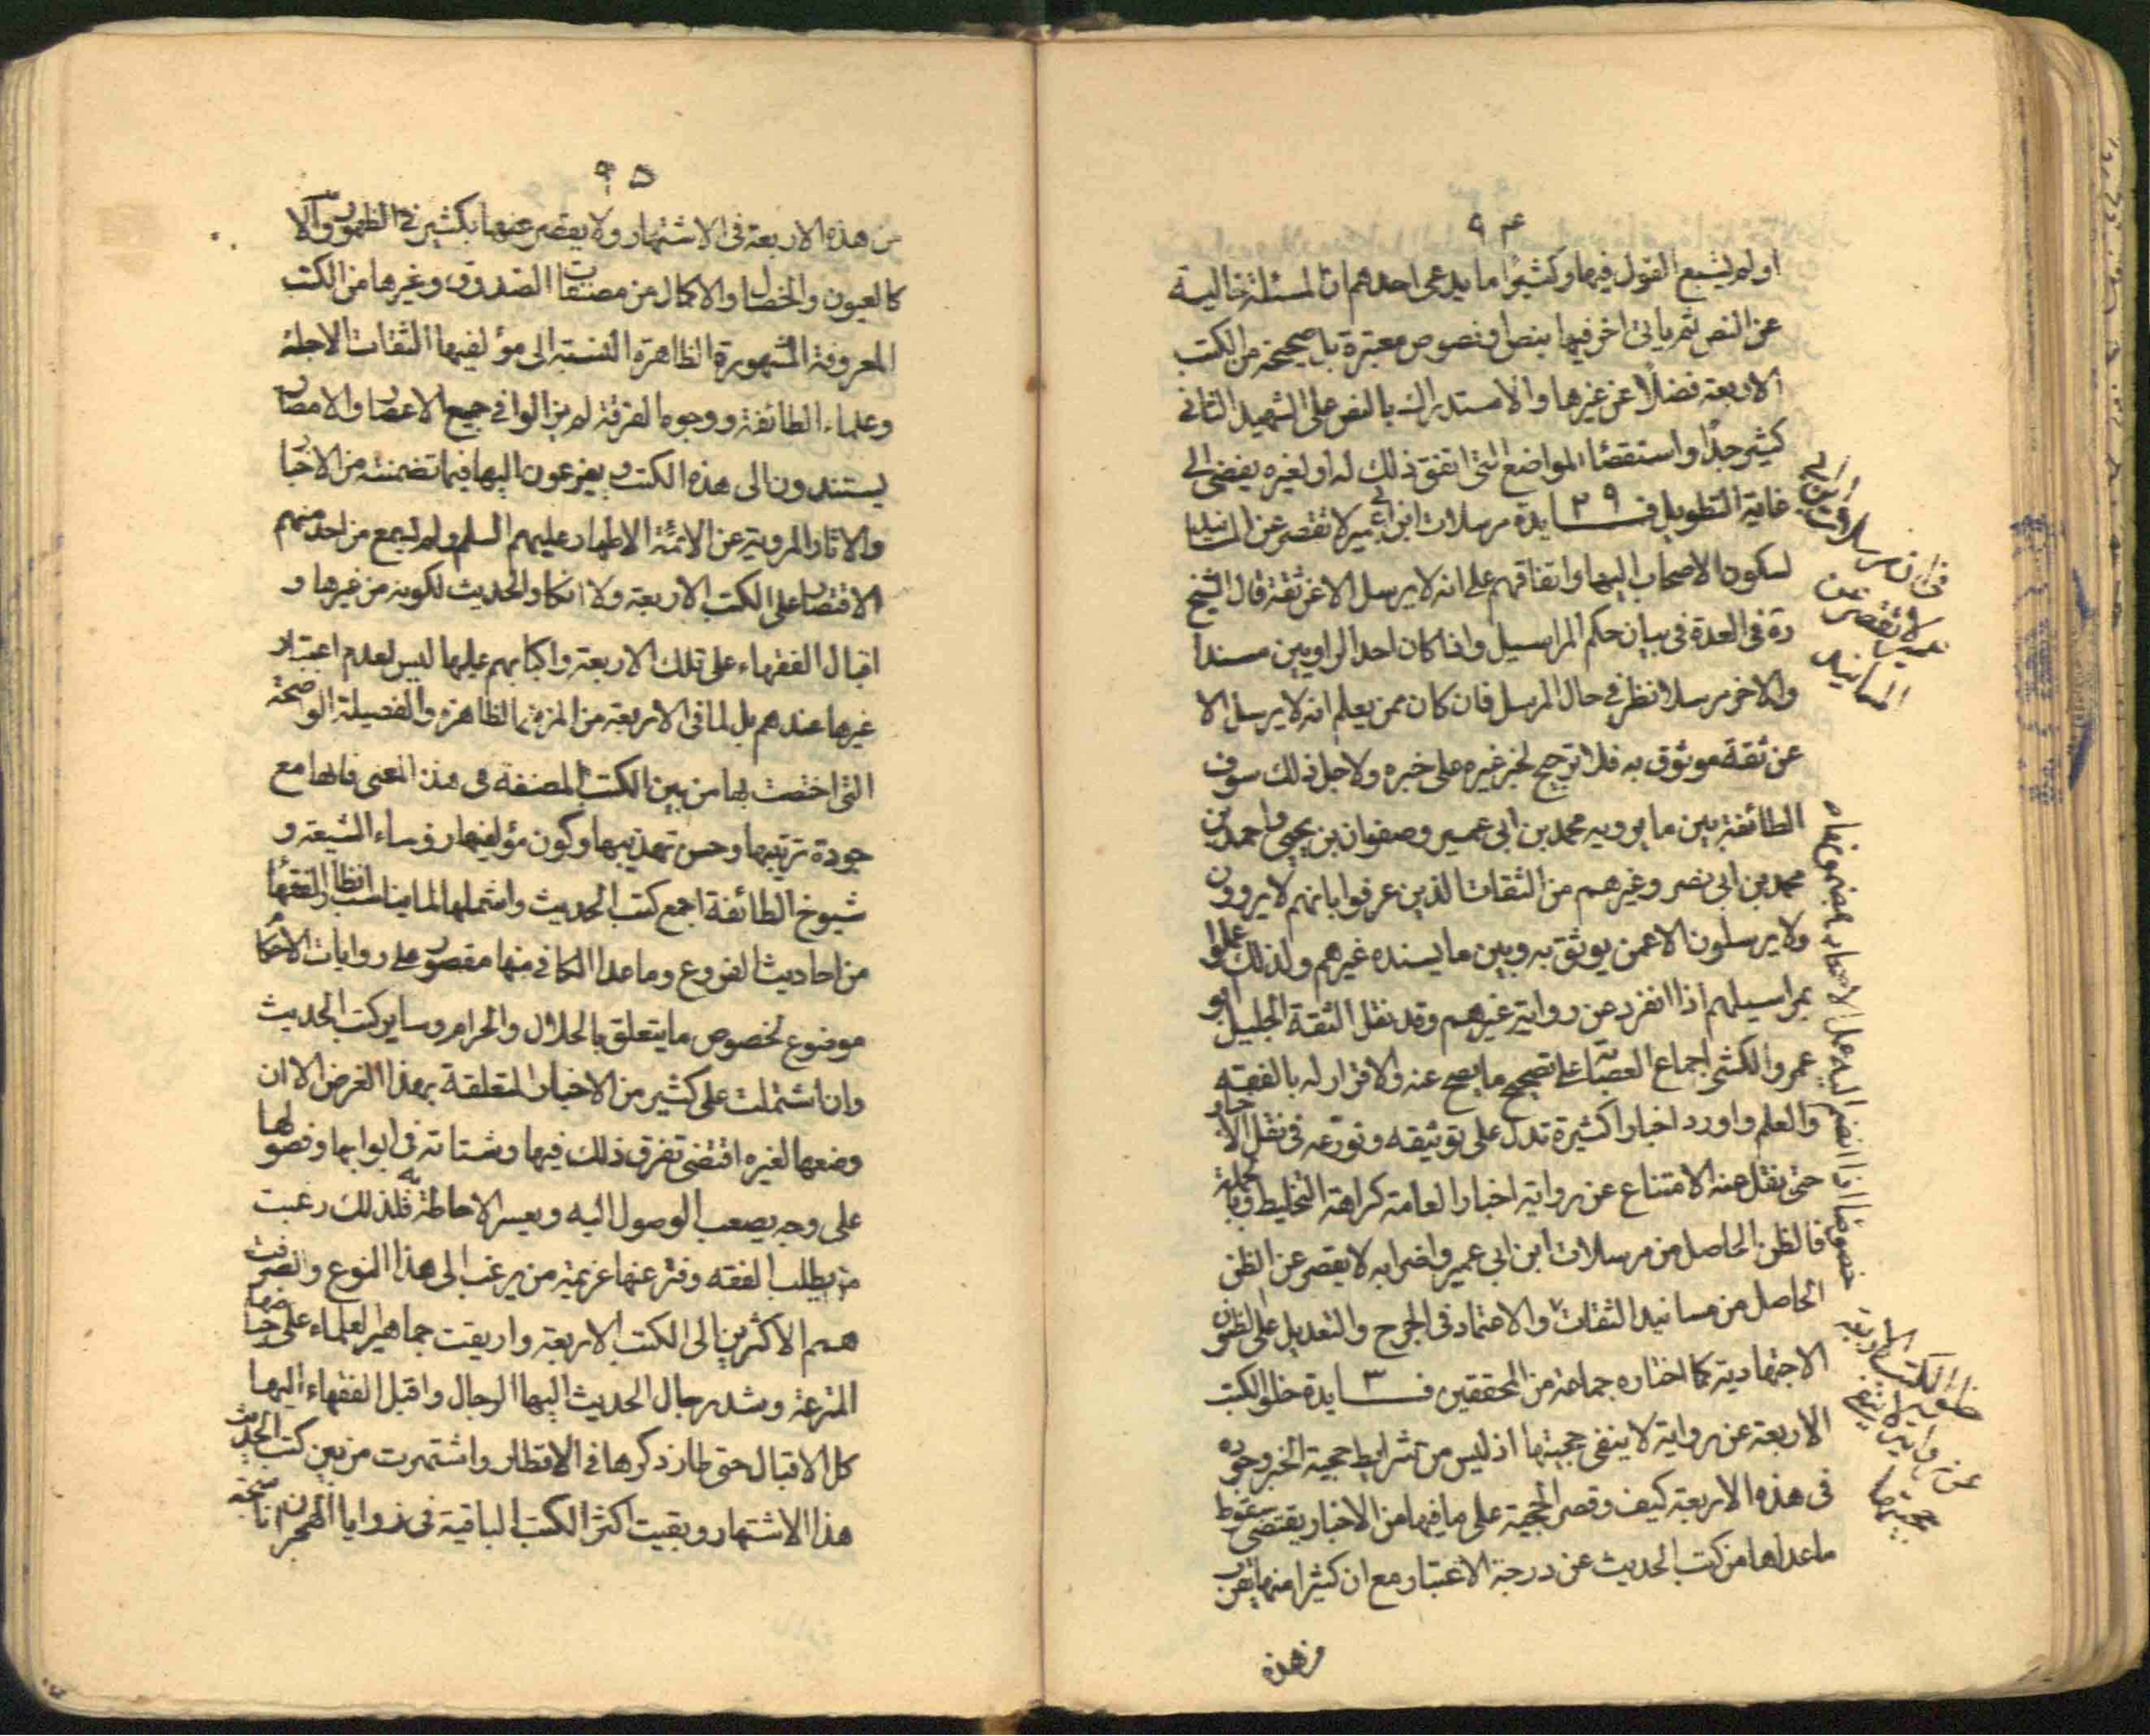 ٩٤
او لم يشبع القول فيها وكثيرا ما يدعى احدهم ان المسئلة خالية
عن النص ثم ياتى اخر فيها بنص او نصوص معتبرة بل صحيحة من الكتب
الاربعة فضلًا عن غيرها والاستدراك بالنص على الشهيد الثانى
كثير جدًا واستقصاء المواضع التى اتفق ذلك له او لغيره يفضى الى
غاية التطويل فــايدة ٢٩ مرسلات ابن ابى عمير لا تقصر عن المسانيد
لسكون الاصحاب اليها واتفاقهم على انه لا يرسل الا عن ثقة قال الشيخ
ره فى العدة فى بيان حكم المراسيل واذا كان احد الراويين مسندا
والاخر مرسلا نظر فى حال المرسل فان كان ممن يعلم انه لا يرسل الا
عن ثقة موثوق به فلا ترجيح لخبر غيره على خبره ولاجل ذلك سوت
الطائفة بين ما يرويه محمد بن ابى عمير وصفوان بن يحيى واحمد بن
محمد بن ابى نصر وغيرهم من الثقات الذين عرفوا بانهم لا يروون
ولا يرسلون الا عمن يوثق به وبين ما يسنده غيرهم ولذلك عملوا
بمراسيلهم اذا انفرد عن رواية غيرهم وقد نقل الثقة الجليل ابو
عمرو الكشى اجماع العصابة على تصحيح ما يصح عنه والاقرار له بالفقه
والعلم واورد اخبارا كثيرة تدل على توثيقه وتورعه فى نقل الاخبار
حتى نقل عنه الامتناع عن رواية اخبار العامة كراهة التخليط وبالجملة
فالظن الحاصل من مرسلات ابن ابى عمير واضرابه لا يقصر عن الظن
الحاصل من مسانيد الثقات والاعتماد فى الجرح والتعديل على الظنون
الاجتهادية كما اختاره جماعة من المحققين فــايدة ٣ خلو الكتب
الاربعة عن رواية لا ينفى حجيتها اذ ليس من شرايط حجية الخبر وجوده
فى هذه الاربعة كيف وقصر الحجية على ما فيها من الاخبار يقتضى سقوط
ما عداها من كتب الحديث عن درجة الاعتبار مع ان كثيرا منها يقرب
من هذه
فى ان مرسلات ابن ابى
عمير لا تقصر عن
المسانيد
خصوصا اذا انضم اليه عمل الاصحاب بمضمونها ه
خلو الكتب الاربعة
عن رواية لا ينفى
حجيتها
٩٥
من هذه الاربعة فى الاشتهار ولا يقصر عنها بكثير فى الظهور
كالعيون والخصال والاكمال من مصنفات الصدوق وغيرها من الكتب
المعروفة المشهورة الظاهرة النسبة الى مؤلفيها الثقات الاجلة
وعلماء الطائفة ووجوه الفرقة لم يزالوا فى جميع الاعصار والامصار
يستندون الى هذه الكتب ويفزعون اليها فيما تضمنته من الاخبار
والاثار المروية عن الائمة الاطهار عليهم السلم ولم يسمع من احد منهم
الاقتصار على الكتب الاربعة ولا انكار الحديث لكونه من غيرها و
اقبال الفقهاء على تلك الاربعة واكبابهم عليها ليس لعدم اعتبار
غيرها عندهم بل لما فى الاربعة من المزية الظاهرة والفضيلة الواضحة
التى اختصت بها من بين الكتب المصنفة فى هذا المعنى فانها مع
جودة ترتيبها وحسن تهذيبها وكون مؤلفيها رؤساء الشيعة و
شيوخ الطائفة اجمع كتب الحديث واشملها لما يناسب انظار الفقهاء
من احاديث الفروع وما عدا الكافى منها مقصور على روايات الاحكام
موضوع لخصوص ما يتعلق بالحلال والحرام وساير كتب الحديث
وان اشتملت على كثير من الاخبار المتعلقة بهذا الغرض الا ان
وضعها لغيره اقتضى تفرق ذلك فيها وشتاته فى ابوابها وفصولها
على وجه يصعب الوصول اليه ويعسر الاحاطة به فلذلك رغبت
من يطلب الفقه وفتر عنها عزيمة من يرغب الى هذا النوع وانصرفت
همم الاكثرين الى الكتب الاربعة واريقت جماهير العلماء على حياضها
المترعة وشد رجال الحديث اليها الرحال واقبل الفقهاء اليها
كل الاقبال حتى طار ذكرها فى الاقطار واشتهرت من بين كتب الحديث
هذا الاشتهار وبقيت اكثر الكتب الباقية فى زوايا الهجران